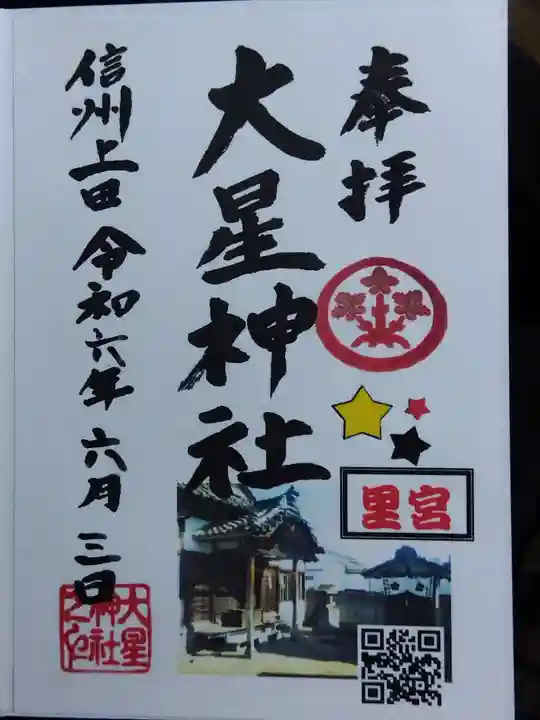 奉拝
里宮
大星神社
信州上田 令和六年 六月 三日
大星
神社